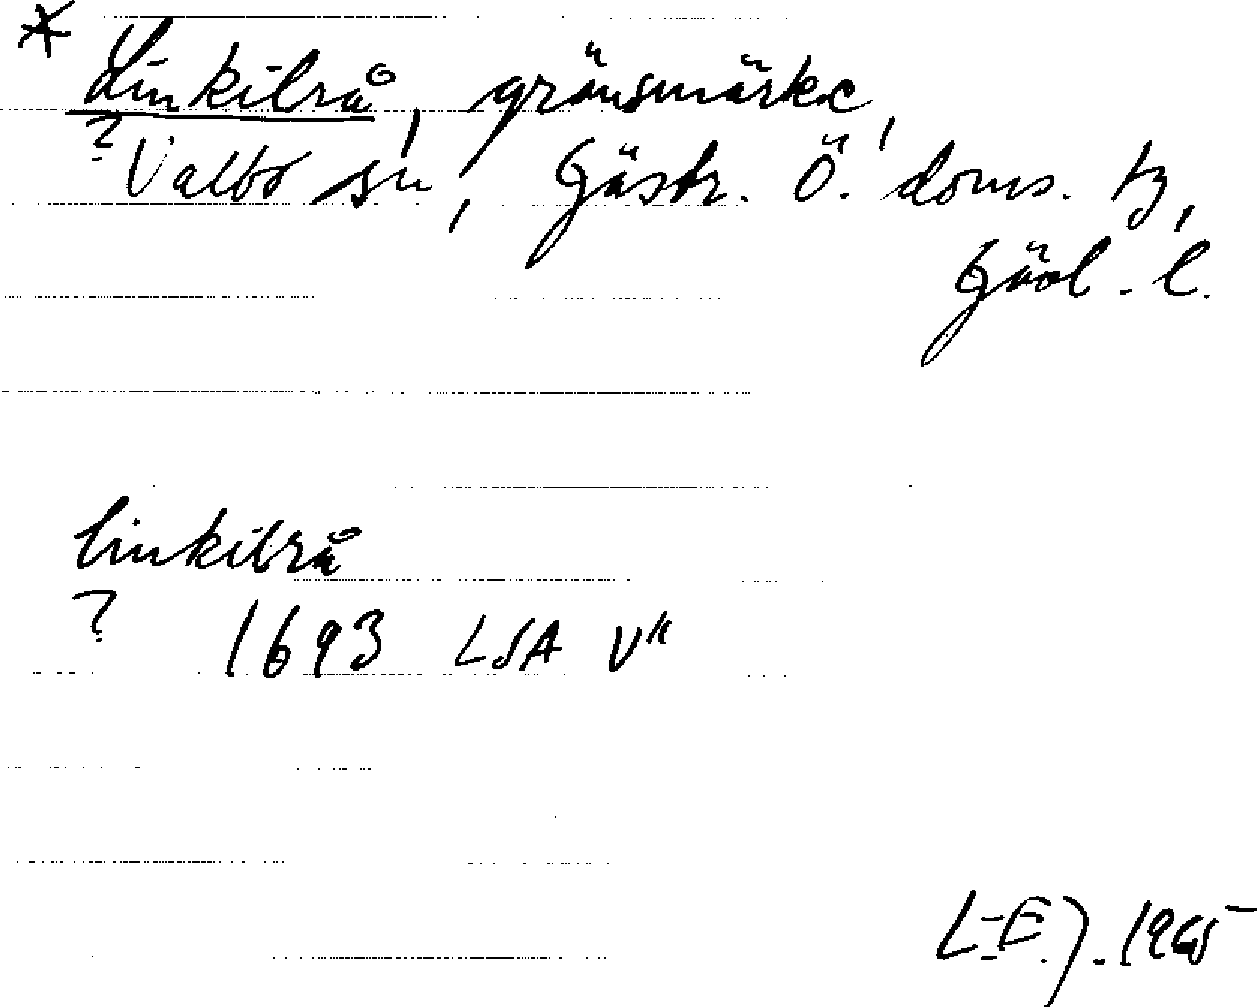 * Linkilrå, gränsmärke,
? Valbo sn, Gästr. Ö. doms. tg,
Gävl. l.
linkilrå
? 1693 LSA V"
L-E.J. 1965